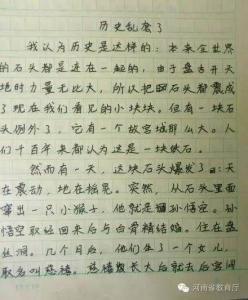 历史乱套了
我认为历史是这样的：本来全世界
的石头都是连在一起的，由于盘古开天
地时力量无比大，所以把
石头都震成
了现在我们看见的小块块。但有一块石
头例外了，它有一个故宫城那么大。人
们千百年来都认为这是一块铁石。
然而有一天，这块石头爆发了：天
在震动，地在摇晃。突然，从石头里面
窜出一只小猴子，他就是
孙悟空。孙
悟空取经回来后与白骨精结婚。住在盘
丝洞。几个月后，他们生了一个女儿，
取名叫慈禧。慈禧
长大后就去后宫
河南省教育厅